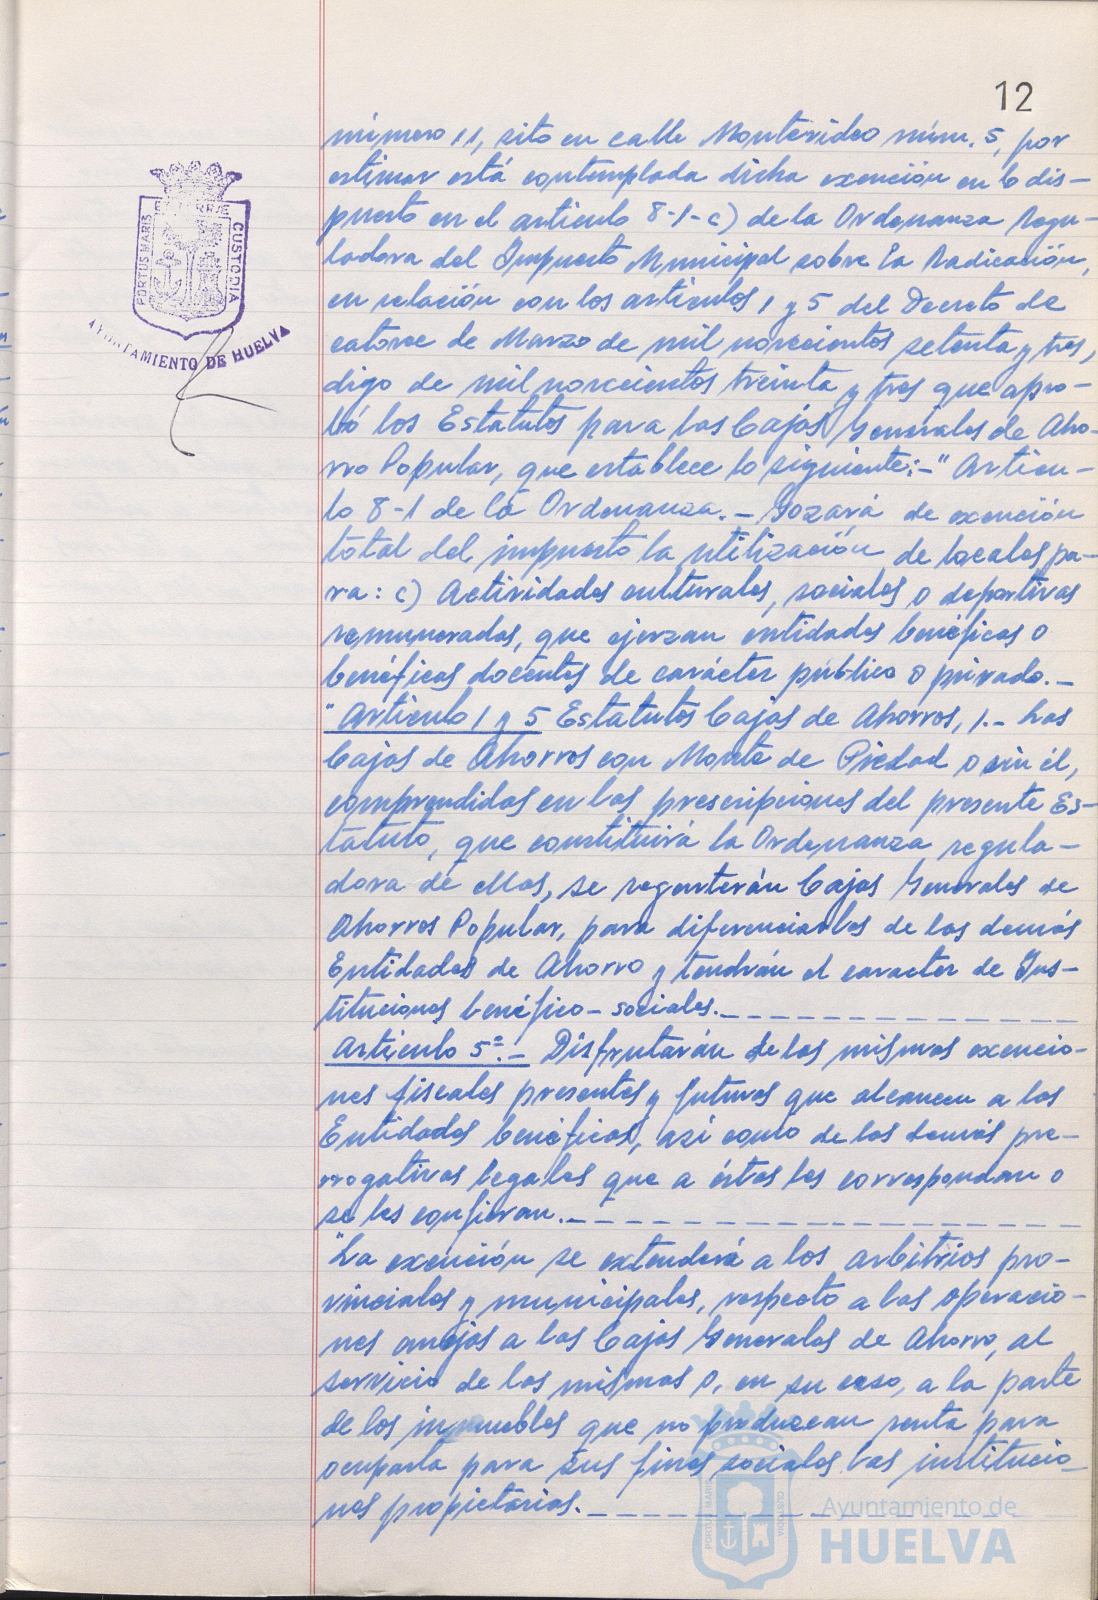 12
PORTUS MARIS
CUSTODIA
AYUNTAMIENTO DE HUELVA
número 11, sito en calle Montevideo núm. 5, por
estimar está contemplada dicha exención en lo dis-
puesto en el artículo 8-1-c) de la Ordenanza Regu-
ladora del Impuesto Municipal sobre la Radicación,
en relación con los artículos 1 y 5 del Decreto de
catorce de Marzo de mil novecientos setenta y tres,
digo de mil novecientos treinta y tres que apro-
bó los Estatutos para las Cajas Generales de Aho-
rro Popular, que establece lo siguiente:-" Artícu-
lo 8-1 de la Ordenanza.- Gozará de exención
total del impuesto la utilización de locales pa-
ra: c) Actividades culturales, sociales o deportivas
remuneradas, que ejerzan entidades benéficas o
benéficas docentes de carácter público o privado.-
"Artículo 1 y 5 Estatutos Cajas de Ahorros, 1.- Las
Cajas de Ahorros con Monte de Piedad o sin él,
comprendidas en las prescripciones del presente Es-
tatuto, que constituirá la Ordenanza regula-
dora de ellas, se Cajas Generales de
Ahorros Popular, para diferenciarlas de las demás
Entidades de Ahorro y tendrán el caracter de Ins-
tituciones benéfico-sociales.-
Artículo 5º.- Disfrutarán de las mismas exencio-
nes fiscales presentes y futuras que alcancen a las
Entidades benéficas, así como de las demás pre-
rrogativas legales que a éstas les correspondan o
se les confieran.-
"La exención se extenderá a los arbitrios pro-
vinciales y municipales, respecto a las operacio-
nes anejas a las Cajas Generales de Ahorro, al
servicio de las mismas o, en su caso, a la parte
de los inmuebles que no produzcan renta para
ocuparla para sus fines sociales las institucio-
nes propietarias.-
PORTUS MARIS
CUSTODIA
Ayuntamiento de
HUELVA